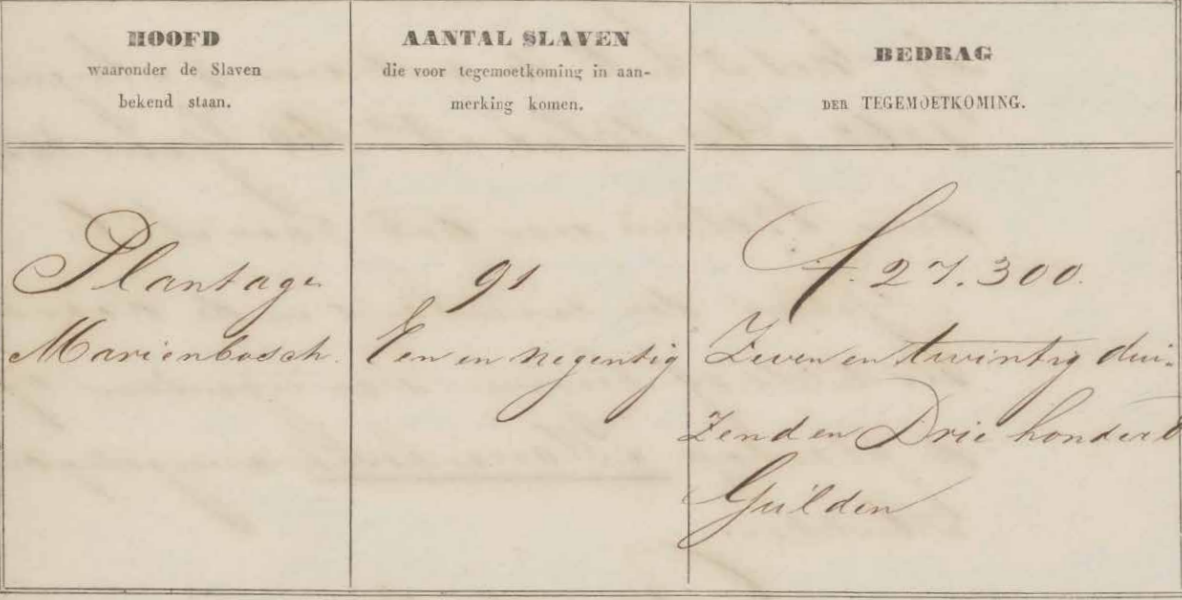 HOOFD
waaronder de Slaven
bekend staan.
AANTAL SLAVEN
die voor tegemoetkoming in aan-
merking komen.
BEDRAG
DER TEGEMOETKOMING.
Plantage
Marienbosch.
91
Een en negentig
f. 27.300.
Zeven en twintig dui-
zend en Drie honderd
Gulden